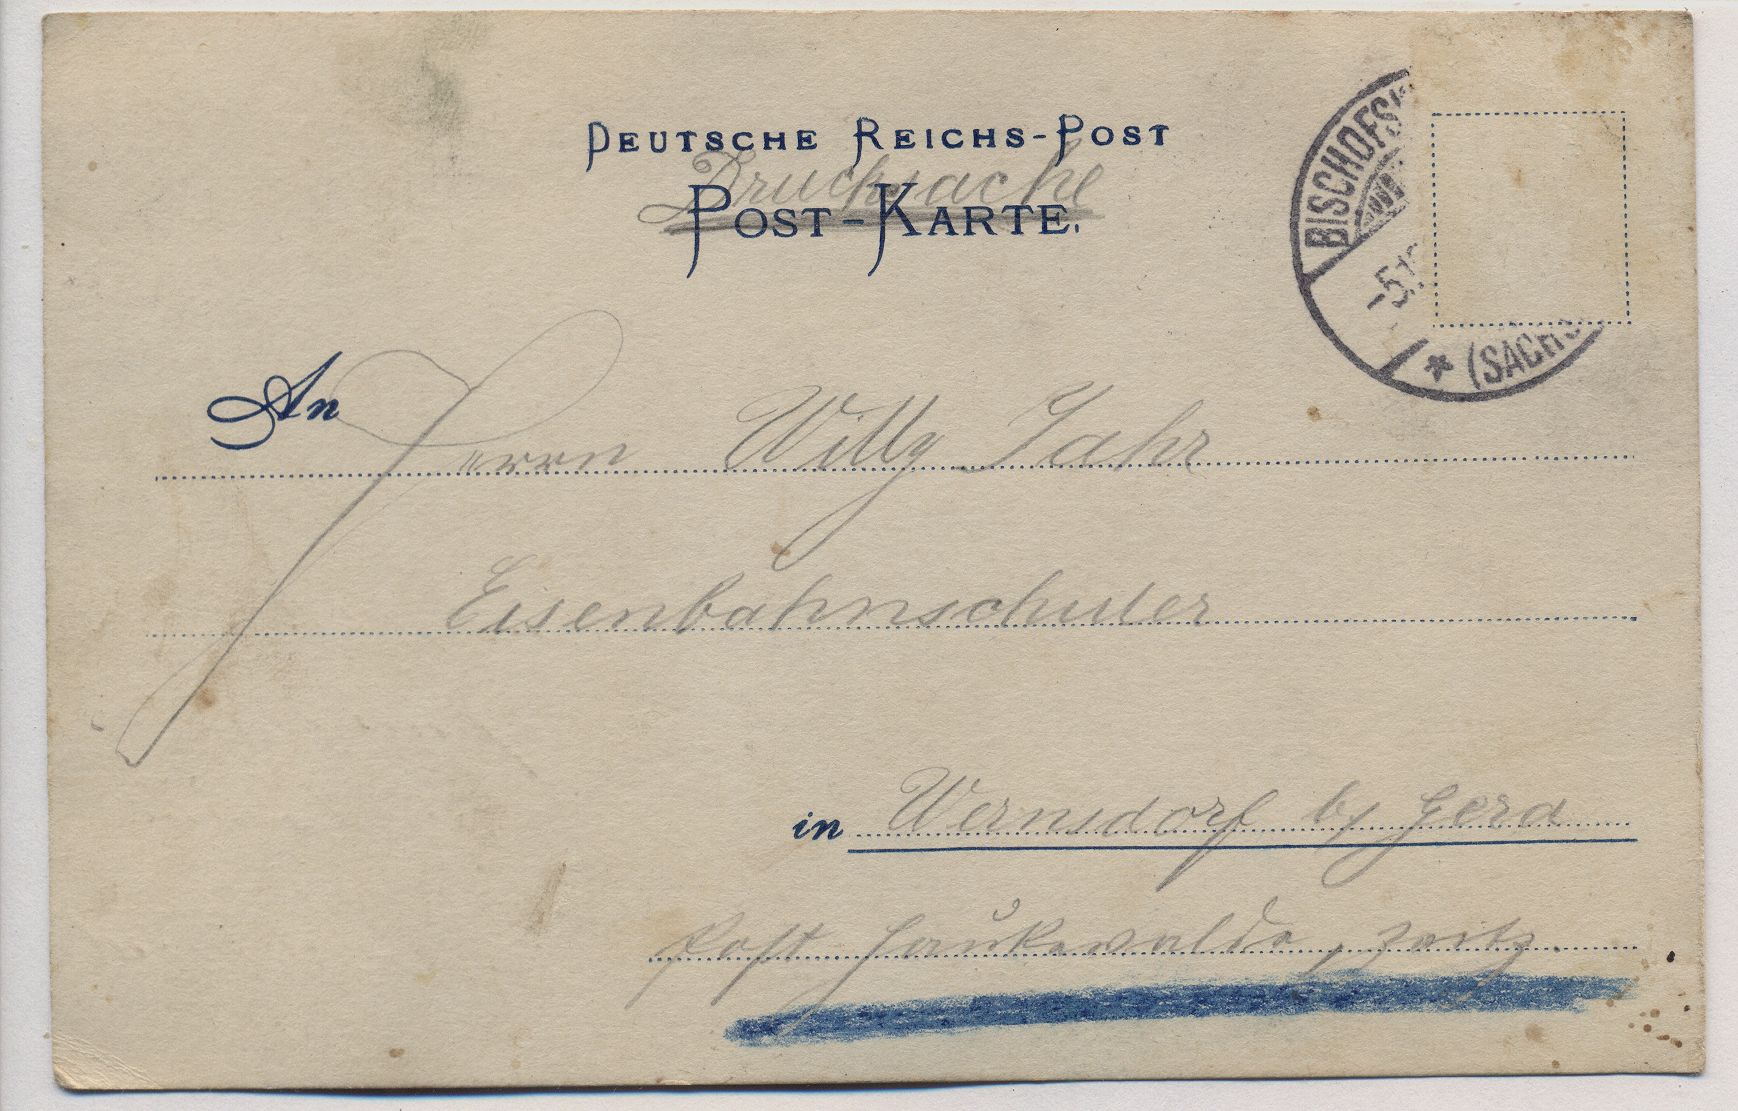 DEUTSCHE REICHS-POST
Drucksache
POST-KARTE.
BISCHOFSW
-5.1
* (SACHS
An Herrn Willy Jahr
Eisenbahnschuler
in Wernsdorf b/ Gera
Post